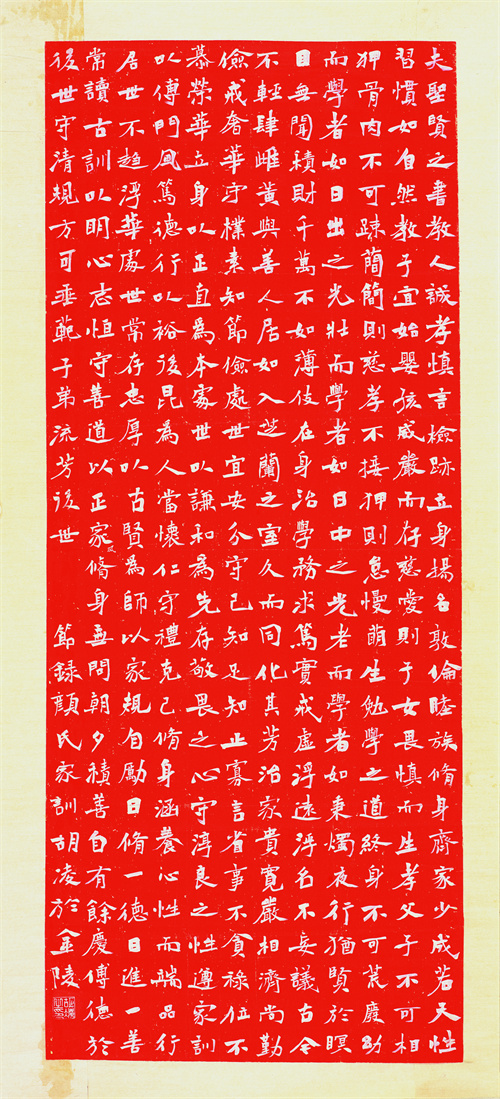 夫聖賢之書教人誠孝慎言檢跡立身揚名敦倫睦族脩身齊家少成若天性
習慣如自然教子宜始嬰孩威嚴而存慈愛則子女畏慎而生孝父子不可相
狎骨肉不可疎蕳簡則慈孝不接狎則怠慢萌生勉學之道終身不可荒廢幼
而學者如日出之光壯而學者如日中之光老而學者如秉燭夜行猶賢於瞑
目無聞積財千萬不如薄伎在身治學務求篤實戒虛浮遠浮名不妄議古今
不輕肆雌黃與善人居如入芝蘭之室久而同化其芳治家貴寬嚴相濟尚勤
儉戒奢華守樸素知節儉處世宜安分守己知足知止寡言省事不貪祿位不
慕榮華立身以正直為本家世以謙和為先存敬畏之心守淳良之性遵家訓
以傳門風篤德行以裕後昆為人當懷仁守禮克己脩身涵養心性而端品行
居世不趨浮華處世常存忠厚以古賢為師以家規自勵日脩一德日進一善
常讀古訓以明心志恒守善道以正家風脩身無問朝夕積善自有餘慶傳德於
後世守清規方可垂範子弟流芳後世 節錄顏氏家訓胡凌於金陵